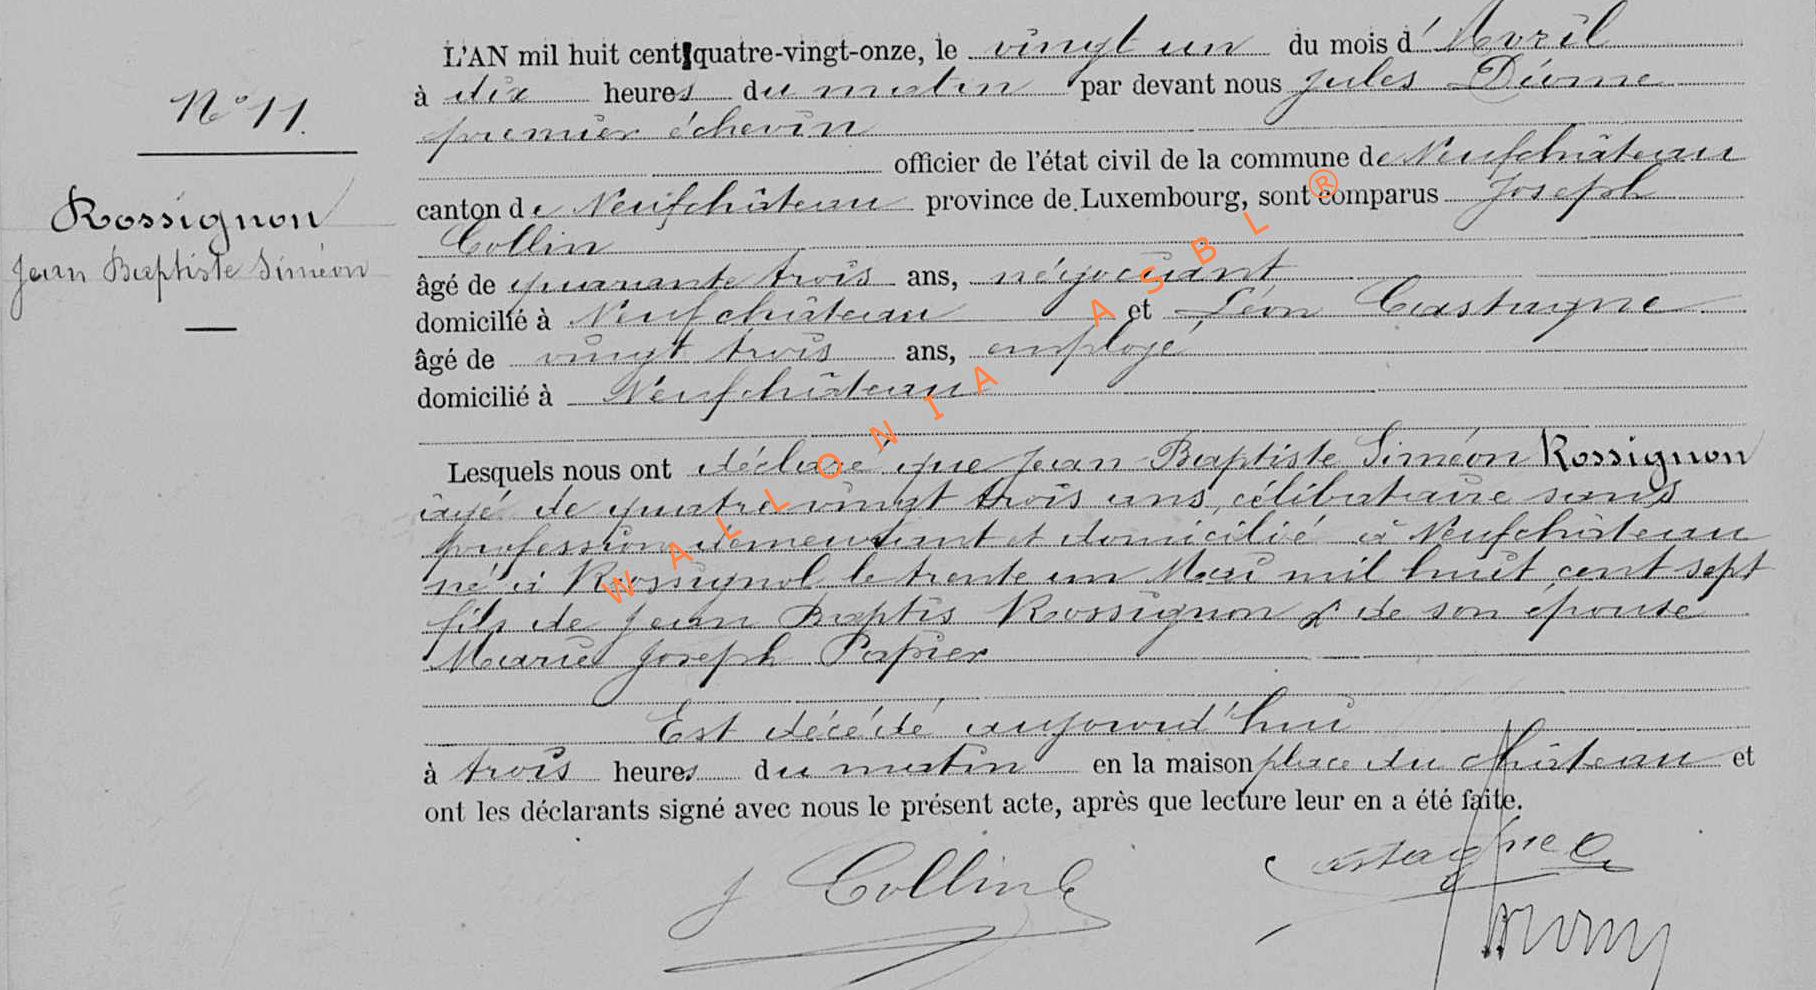 N° 11.
Rossignon
Jean Baptiste Siméon
L'AN mil huit cent quatre-vingt-onze, le vingt un du mois d'Avril
à dix heures du matin par devant nous Jules Diome
premier échevin
officier de l'état civil de la commune de Neufchâteau
canton de Neufchâteau province de Luxembourg, sont comparus Joseph
Collin
âgé de quarante trois ans, négociant
domicilié à Neufchâteau et Léon Castagne
âgé de vingt trois ans, employé
domicilié à Neufchâteau
Lesquels nous ont déclaré que Jean Baptiste Siméon Rossignon
âgé de quatre vingt trois ans, célibataire sans
profession demeurant et domicilié à Neufchâteau
né à Rossignol le trente un Mai mil huit cent sept
fils de Jean Baptis Rossignon & de son épouse
Marie Joseph Papier
Est décédé aujourd'hui
à trois heures du matin en la maison place du château et
ont les déclarants signé avec nous le présent acte, après que lecture leur en a été faite.
J Collin
Castagne
WALLONIA ASBL ®